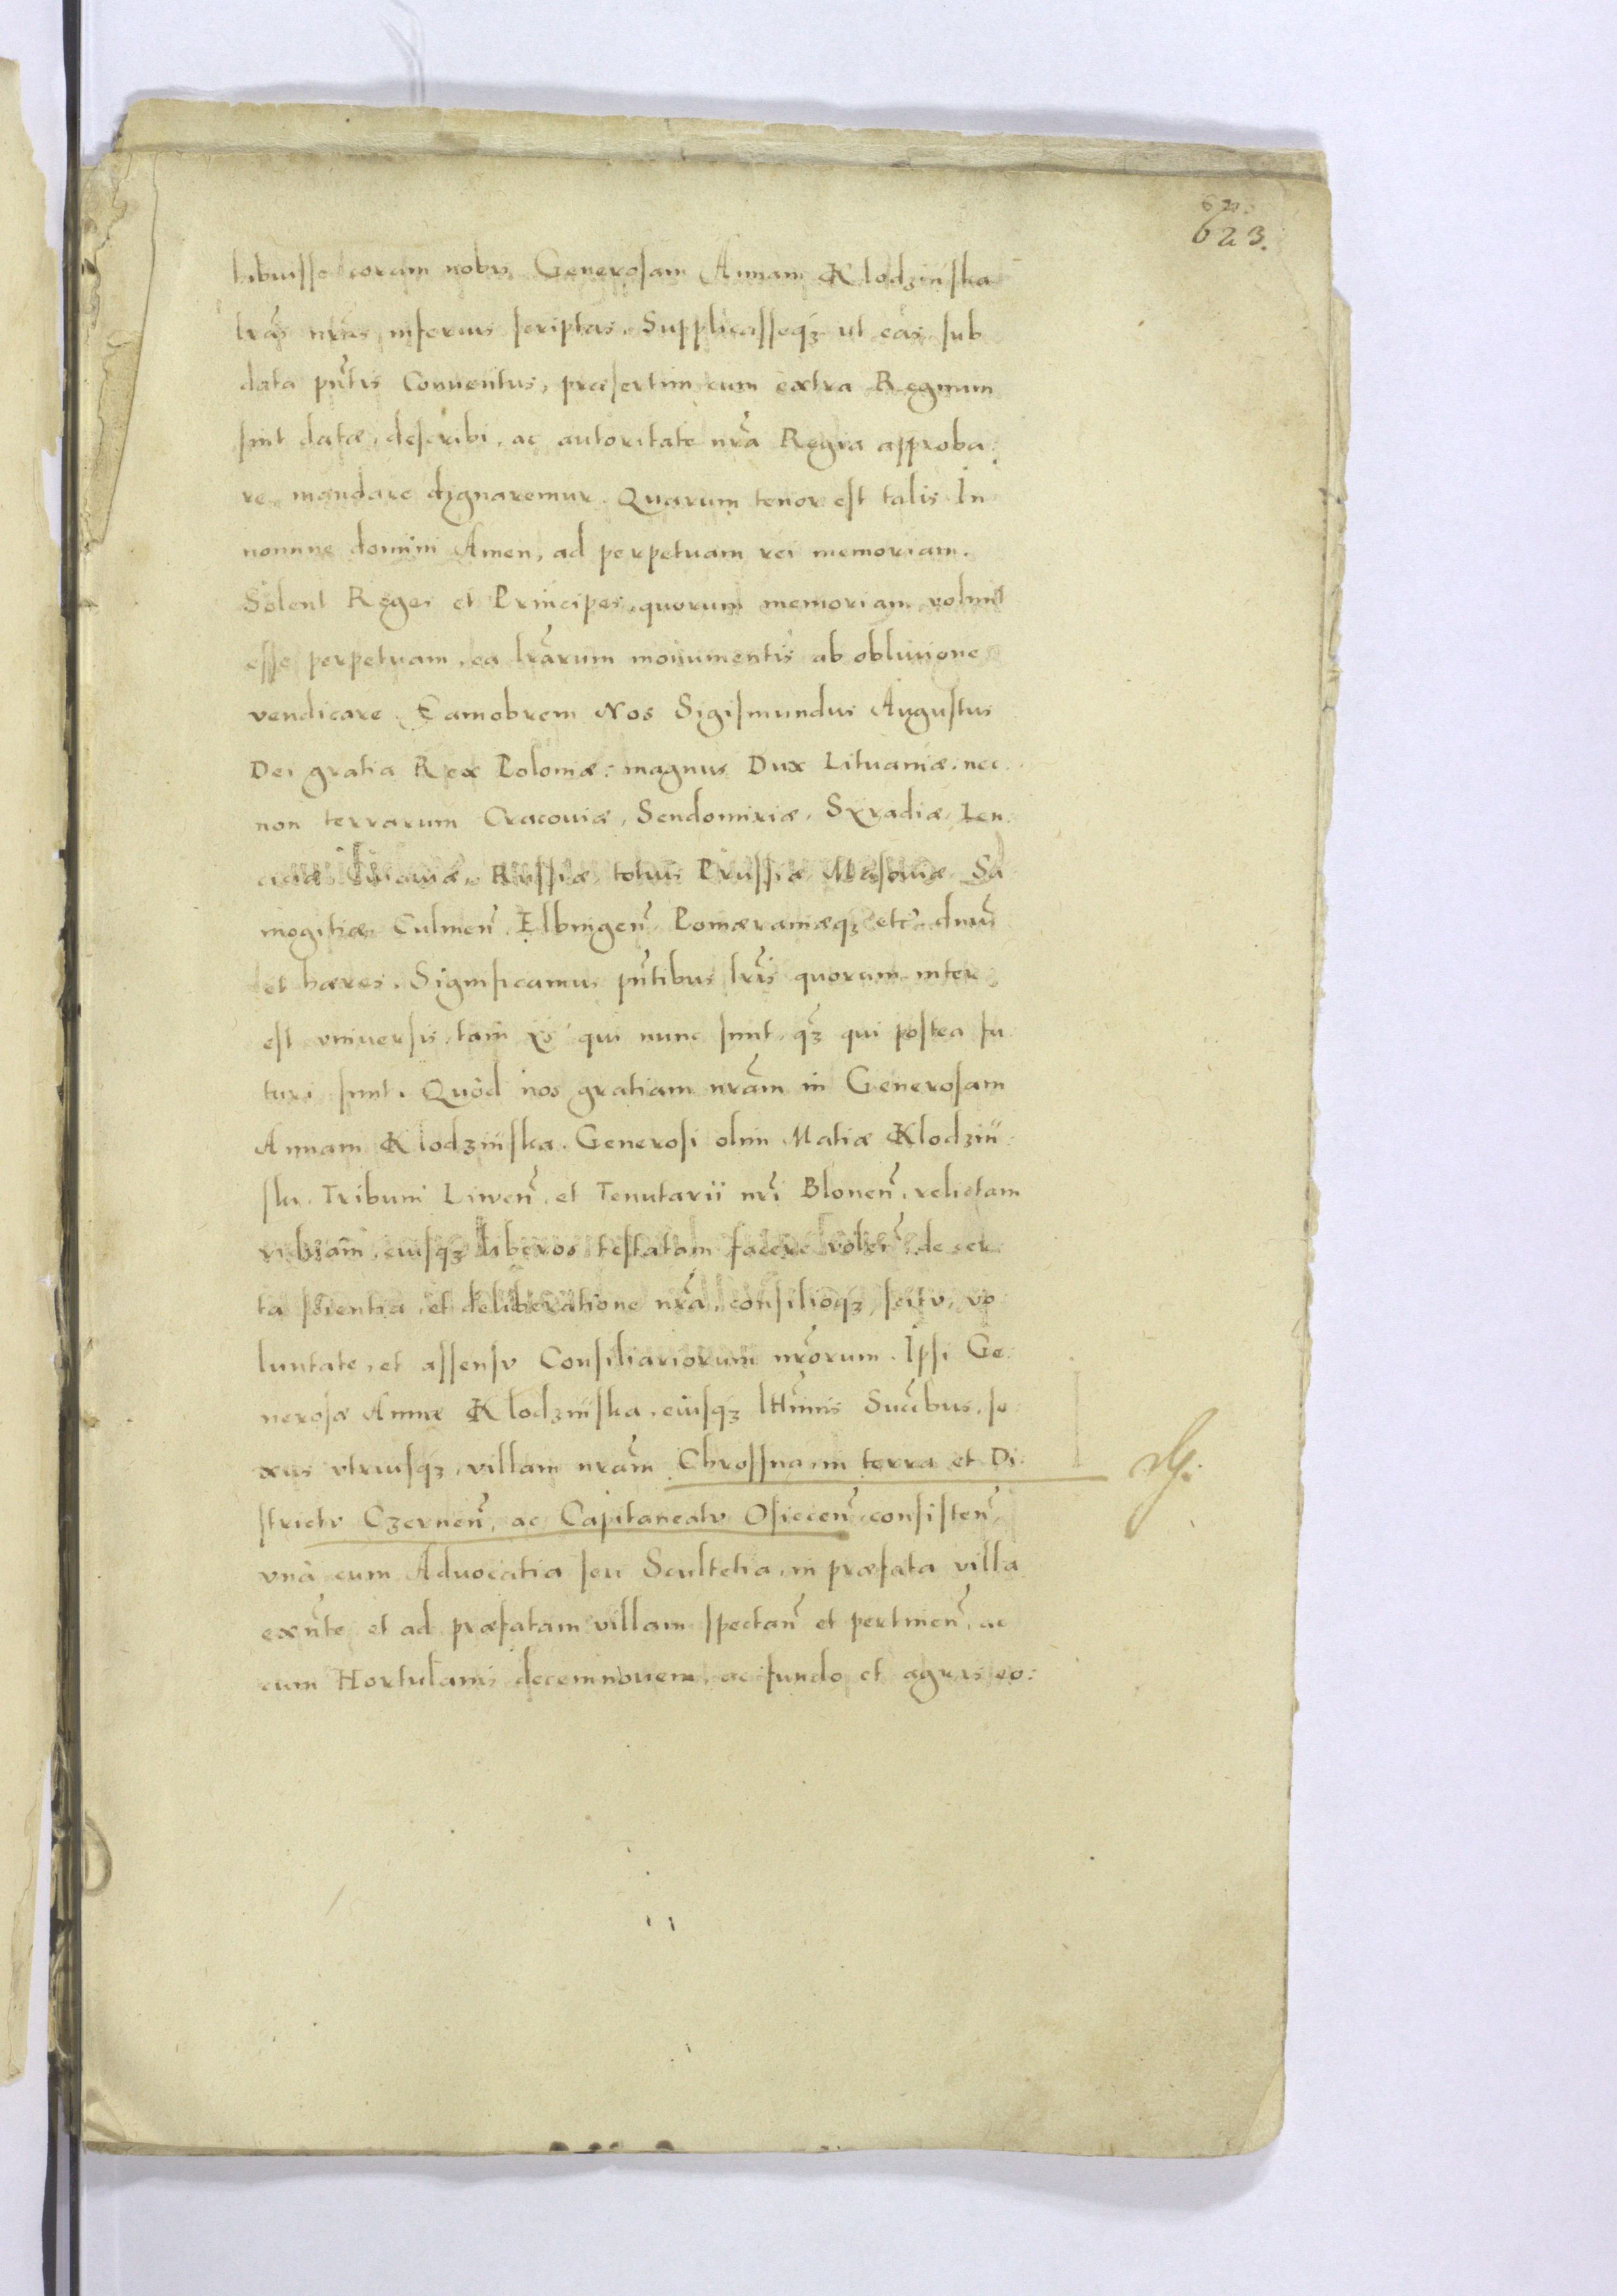 623.
hibuisse coram nobis Generosam Annam Klodzinska
lras nras inferius scriptas. Supplicasseqz ut eas sub
data pntis Conuentus, præsertim cum extra Regnum
sint datæ, describi, ac autoritate nra Regia approba:
re mandare dignaremur. Quarum tenor est talis. In
nomine domini Amen, ad perpetuam rei memoriam.
Solent Reges et Principes, quorum memoriam volunt
esse perpetuam, ea lrarum monumentis ab obliuione
vendicare. Eamobrem Nos Sigismundus Augustus
Dei gratia Rex Poloniæ: magnus Dux Lituaniæ. nec
non terrarum Cracouiæ, Sendomiriæ, Syradiæ, Len:
ciciæ Cuiauiæ, Russiæ, totius Prussiæ Masouiæ Sa
mogitiæ Culmen Elbingen Pomæraniæqz etc dnus
et hæres. Significamus pntibus lris quorum inter
est vniuersis, tam ys qui nunc sunt, qz qui postea fu
turi sunt. Quòd nos gratiam nram in Generosam
Annam Klodzinska. Generosi olim Matiæ Klodzin:
ski. Tribuni Liwen, et Tenutarii nri Blonen, relictam
viduam, eiusqz liberos testatam facere volen, de cer
ta scientia, et deliberatione nra, consilioqz, scitu, vo
luntate, et assensu Consiliariorum nrorum. Ipsi Ge:
nerosæ Annæ Klodzinska, eiusqz lttimis Succbus, se:
xus vtriusqz, villam nram Chrossna, in terra et Di:
strictu Czernen, ac Capitaneatu Osiecen consisten,
vnà cum Aduocatia seu Scultetia, in præfata villa
exnte et ad præfatam villam spectan et pertinen, ac
cum Hortulanis decemnouem, ac fundo et agris eo: